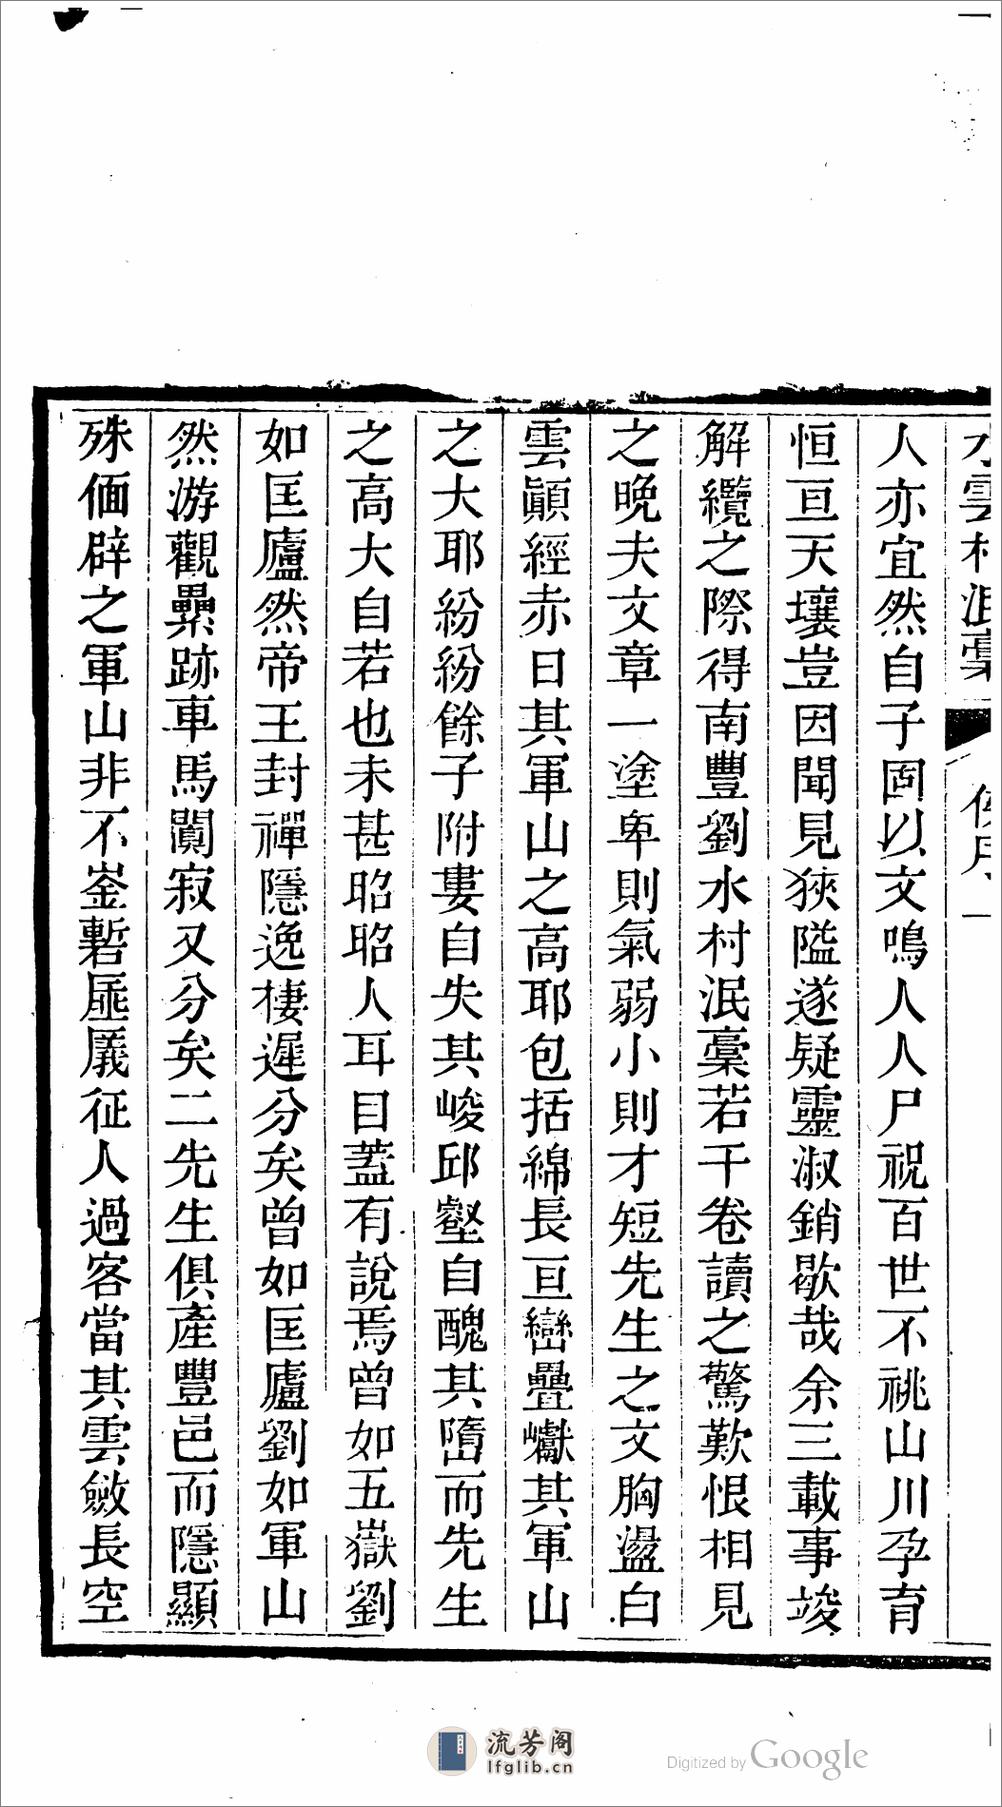 水雲村泯稾 侯序 一
人亦宜然自子固以文鳴人人尸祝百世不祧山川孕育
恒亘天壤豈因聞見狹隘遂疑靈淑銷歇哉余三載事竣
解纜之際得南豐劉水村泯稾若干卷讀之驚歎恨相見
之晚夫文章一塗卑則氣弱小則才短先生之文胸盪白
雲顚經赤日其軍山之高耶包括綿長亘巒疊巘其軍山
之大耶紛紛餘子附婁自失其峻邱壑自醜其隋而先生
之高大自若也未甚昭昭人耳目蓋有說焉曾如五嶽劉
如匡廬然帝王封禪隱逸棲遲分矣曾如匡廬劉如軍山
然游觀纍跡車馬闃寂又分矣二先生俱產豐邑而隱顯
殊偭辟之軍山非不崟嶄厜㕒征人過客當其雲斂長空
流芳阁
lfglib.cn
Digitized by Google